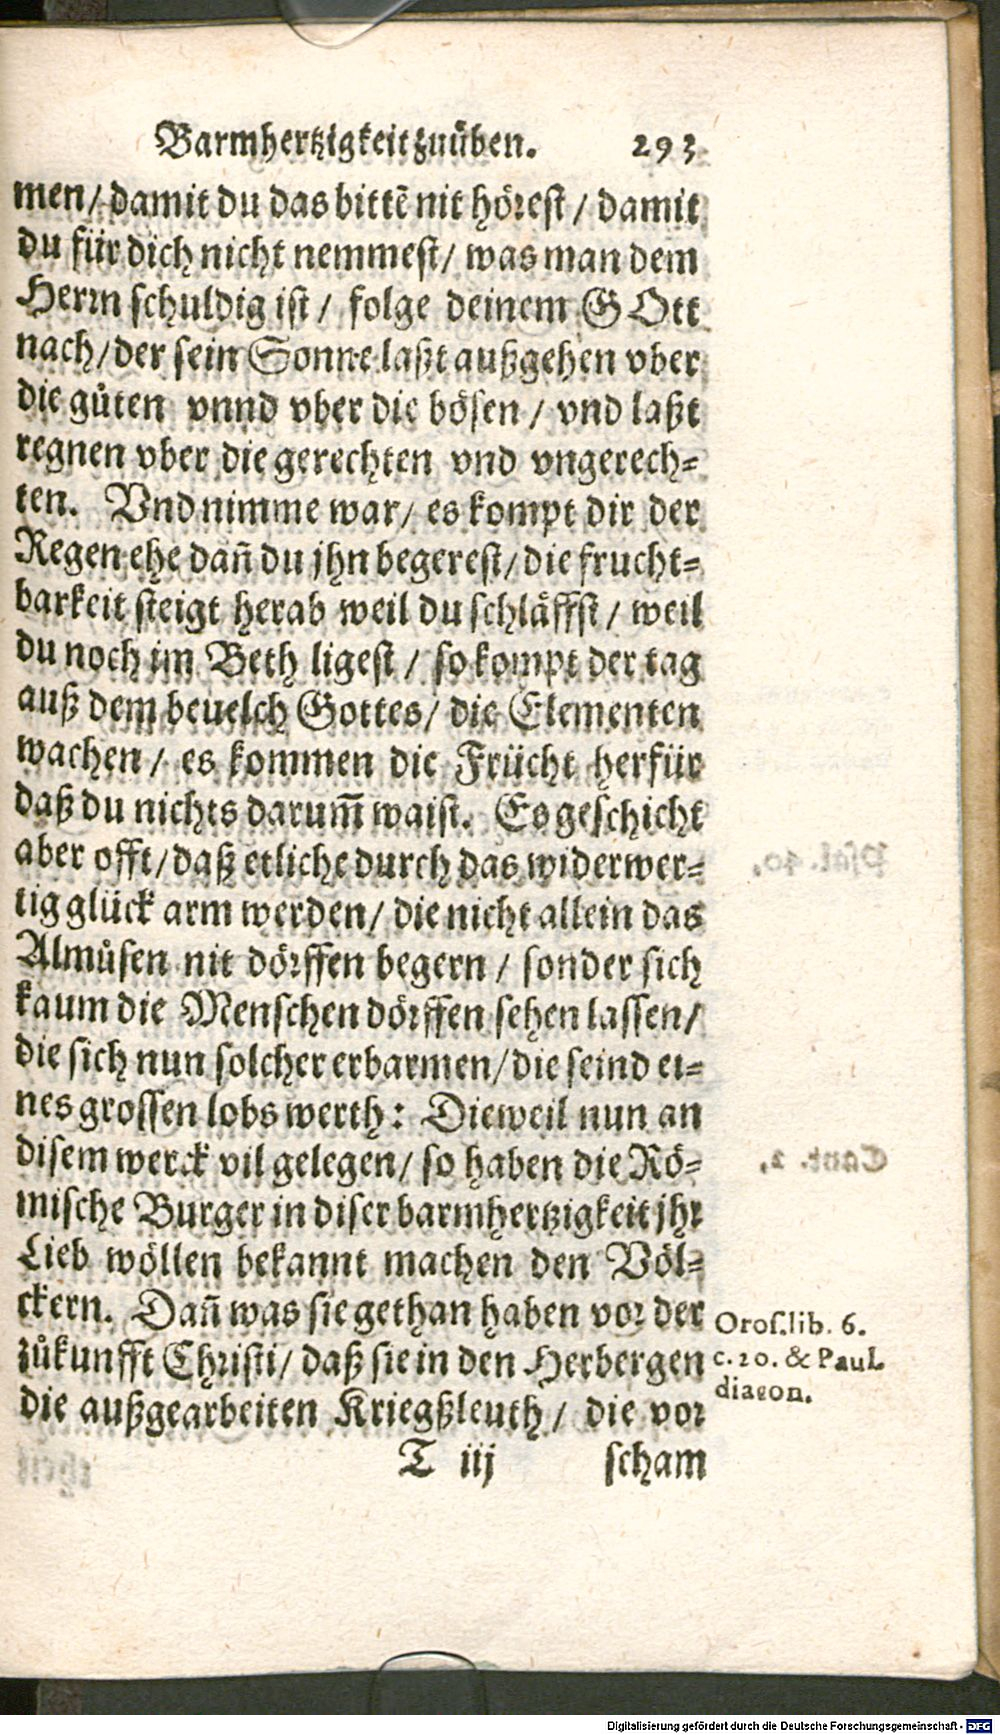 Barmhertzigkeit zuüben. 293
men / damit du das bittē nit hörest / damit
du für dich nicht nemmest / was man dem
Herrn schuldig ist / folge deinem GOtt
nach / der sein Sonne laßt außgehen vber
die gůten vnnd vber die bösen / vnd laßt
regnen vber die gerechten vnd vngerech-
ten. Vnd nimme war / es kompt dir der
Regen ehe dañ du jhn begerest / die frucht-
barkeit steigt herab weil du schläffst / weil
du noch im Beth ligest / so kompt der tag
auß dem beuelch Gottes / die Elementen
wachen / es kommen die Frücht herfür
daß du nichts darum̃ waist. Es geschicht
aber offt / daß etliche durch das widerwer-
tig glück arm werden / die nicht allein das
Almůsen nit dörffen begern / sonder sich
kaum die Menschen dörffen sehen lassen /
die sich nun solcher erbarmen / die seind ei-
nes grossen lobs werth: Dieweil nun an
disem werck vil gelegen / so haben die Rö-
mische Burger in diser barmhertzigkeit jhr
Lieb wöllen bekannt machen den Völ-
ckern. Dañ was sie gethan haben vor der
zůkunfft Christi / daß sie in den Herbergen
die außgearbeiten Kriegßleuth / die vor
Oros. lib. 6.
c. 20. & Paul.
diacon.
T iij scham
Digitalisierung gefördert durch die Deutsche Forschungsgemeinschaft - DFG